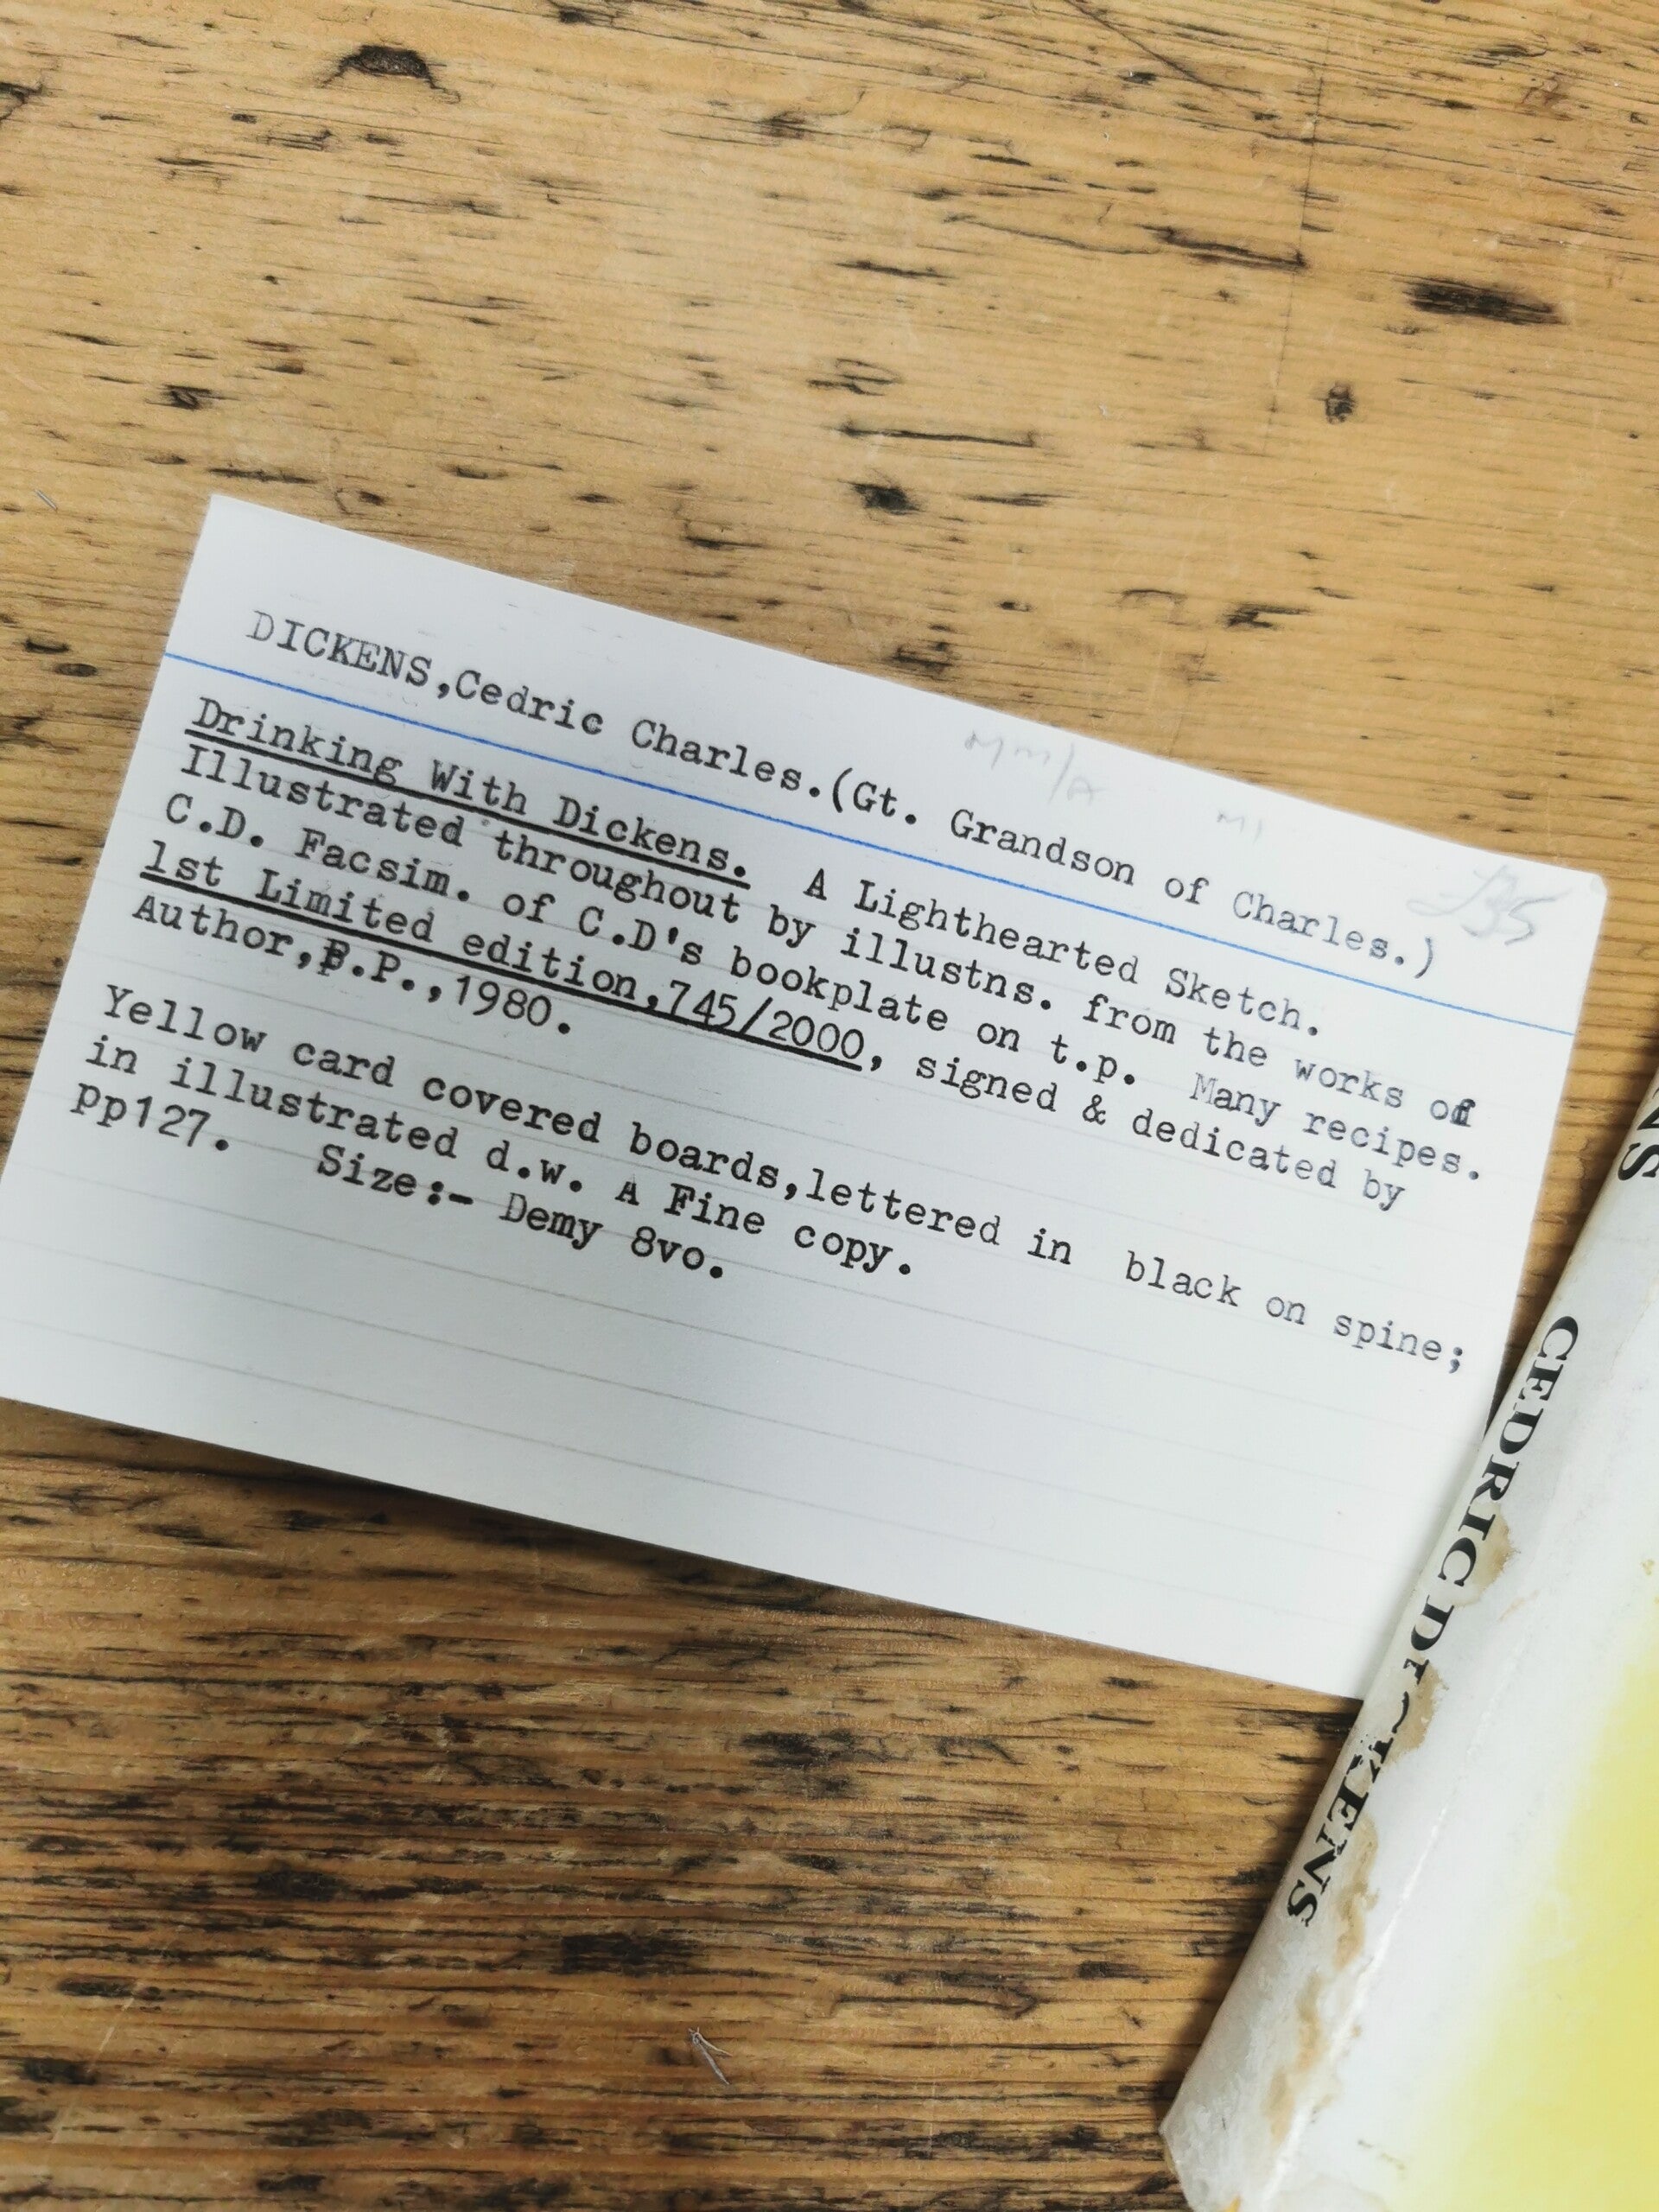 DICKENS,Cedric Charles.(Gt. Grandson of Charles.)
£35
Drinking With Dickens. A Lighthearted Sketch.
Illustrated throughout by illustns. from the works of
C.D. Facsim. of C.D's bookplate on t.p. Many recipes.
1st Limited edition,745/2000, signed & dedicated by
Author,P.P.,1980.
Yellow card covered boards,lettered in black on spine;
in illustrated d.w. A Fine copy.
Pp127. Size:- Demy 8vo.
CEDRIC DICKENS